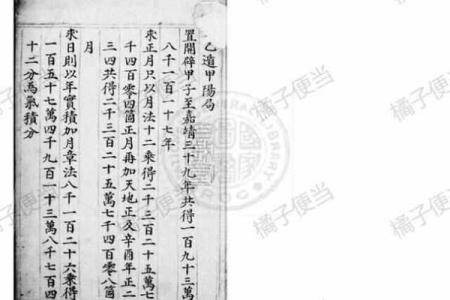 乙遁甲陽局
置開辟甲子至嘉靖三十九年共得一百九十三萬
八千一百一十七年
求正月只以月法十二乘得二千三百二十五萬七
千四百零四箇正月再加天地正及辛酉年正二
三四共得二千三百二十五萬七千四百零八箇
月
求日則以年實積加月章法八千一百二十六乘得
一百五十七萬四千九百一十三萬八千七百四
十二分為氣積分
橘子便当
橘子便当
橘子便当
橘子便当
橘子便当